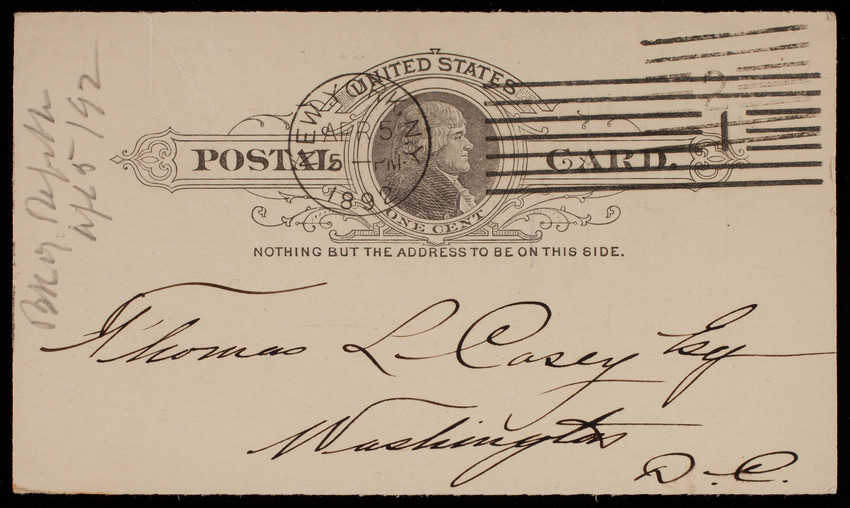 UNITED STATES
POSTAL CARD.
ONE CENT
NEW YORK, N.Y.
APR 5
PM
1892
2
1
NOTHING BUT THE ADDRESS TO BE ON THIS SIDE.
Thomas L Casey Esq
Washington
D.C.
5/92